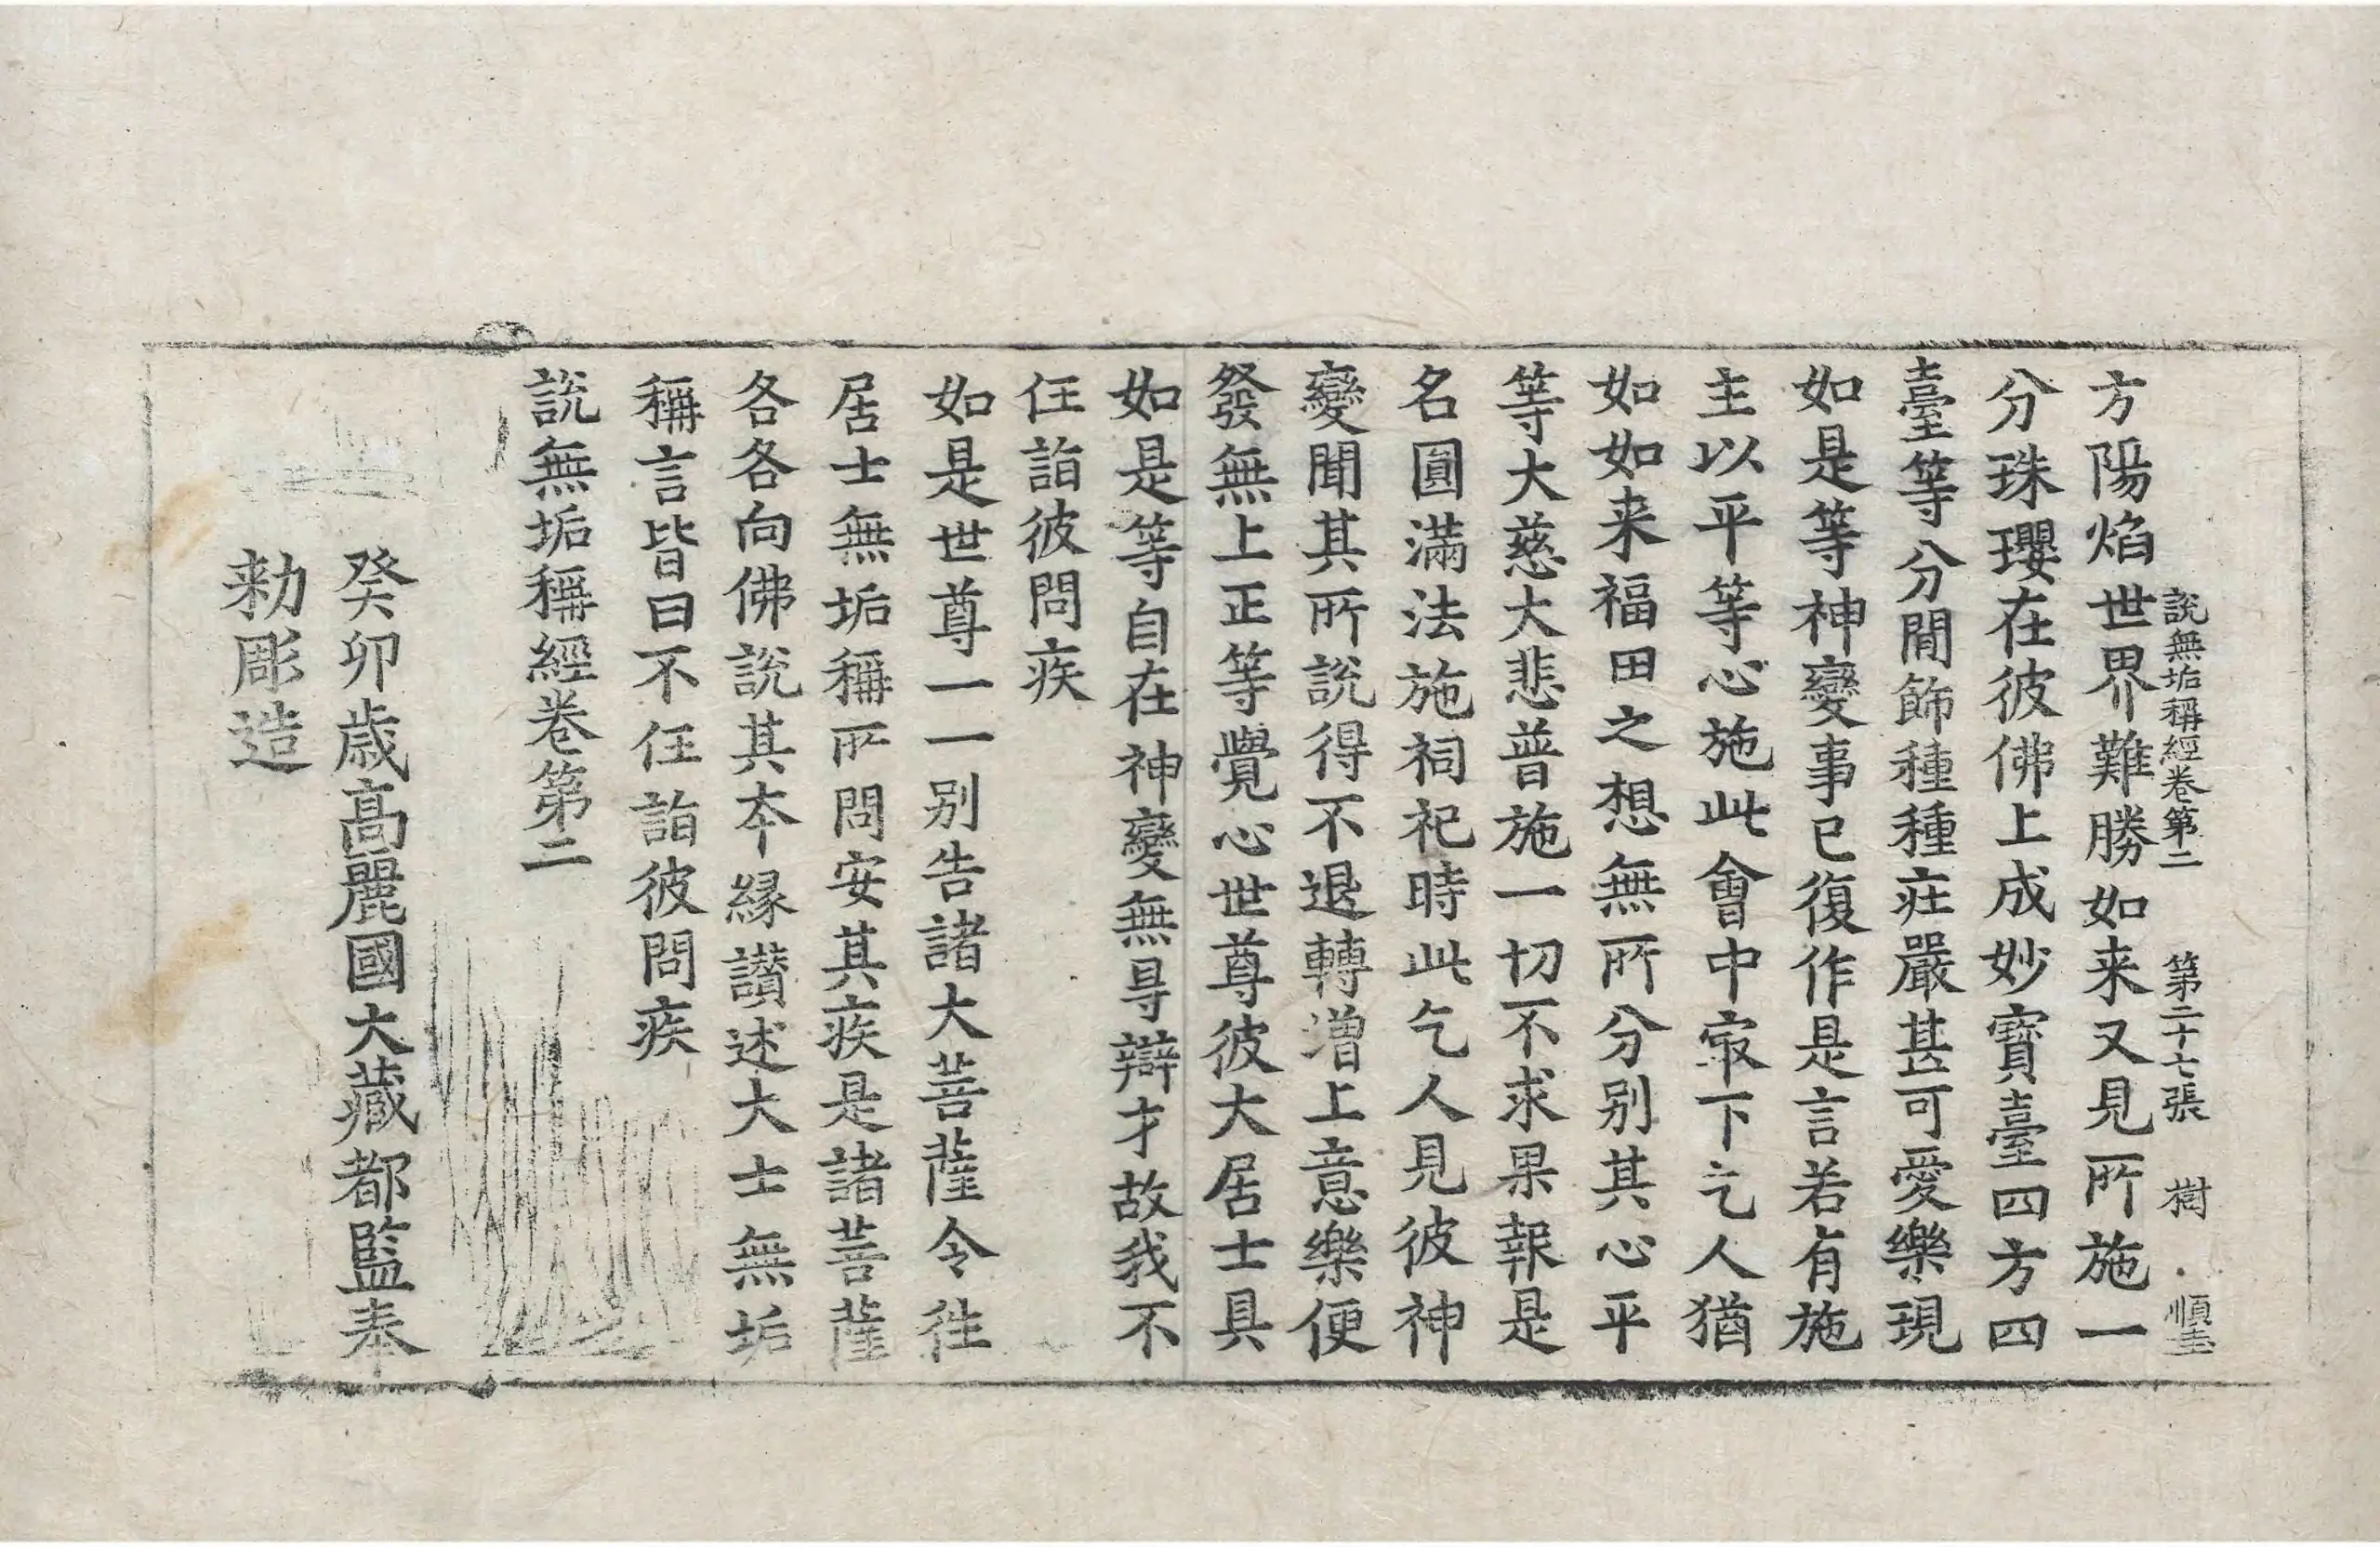 說無垢稱經卷第二 第二十七張 樹 順圭
方陽焰世界難勝如来又見所施一
分珠瓔在彼佛上成妙寶臺四方四
臺等分閒飾種種莊嚴甚可愛樂現
如是等神變事已復作是言若有施
主以平等心施此會中㝡下乞人猶
如如来福田之想無所分别其心平
等大慈大悲普施一切不求果報是
名圓滿法施祠祀時此乞人見彼神
變聞其所說得不退轉增上意樂便
發無上正等覺心世尊彼大居士具
如是等自在神變無㝵辯才故我不
任詣彼問疾
如是世尊一一别告諸大菩薩令往
居士無垢稱所問安其疾是諸菩薩
各各向佛說其夲緣讃述大士無垢
稱言皆曰不任詣彼問疾
說無垢稱經卷第二
癸卯歲高麗國大藏都監奉
勑彫造